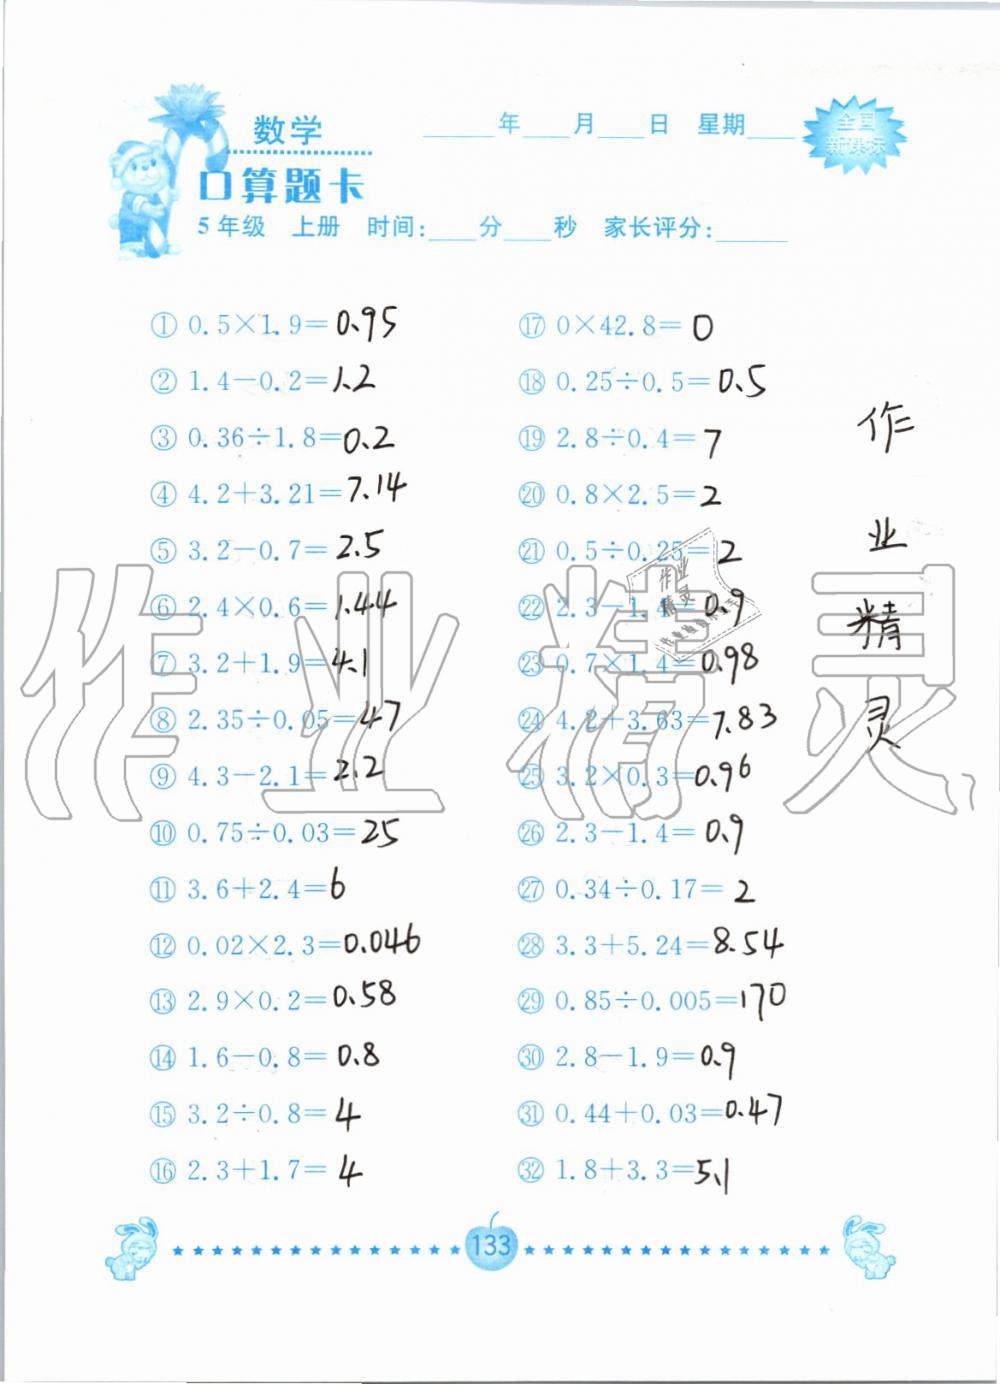 数学
____年____月____日 星期____
全国
新课标
口算题卡
5年级 上册 时间:____分____秒 家长评分:____
① 0.5×1.9=0.95
② 1.4－0.2=1.2
③ 0.36÷1.8=0.2
④ 4.2+3.21=7.14
⑤ 3.2－0.7=2.5
⑥ 2.4×0.6=1.44
⑦ 3.2+1.9=4.1
⑧ 2.35÷0.05=47
⑨ 4.3－2.1=2.2
⑩ 0.75÷0.03=25
⑪ 3.6+2.4=6
⑫ 0.02×2.3=0.046
⑬ 2.9×0.2=0.58
⑭ 1.6－0.8=0.8
⑮ 3.2÷0.8=4
⑯ 2.3+1.7=4
⑰ 0×42.8=0
⑱ 0.25÷0.5=0.5
⑲ 2.8÷0.4=7
⑳ 0.8×2.5=2
㉑ 0.5÷0.25=2
㉒ 2.3－1.4=0.9
㉓ 0.7×1.4=0.98
㉔ 4.2+3.63=7.83
㉕ 3.2×0.3=0.96
㉖ 2.3－1.4=0.9
㉗ 0.34÷0.17=2
㉘ 3.3+5.24=8.54
㉙ 0.85÷0.005=170
㉚ 2.8－1.9=0.9
㉛ 0.44+0.03=0.47
㉜ 1.8+3.3=5.1
作
业
精
灵
作业精灵
作业
精灵
133